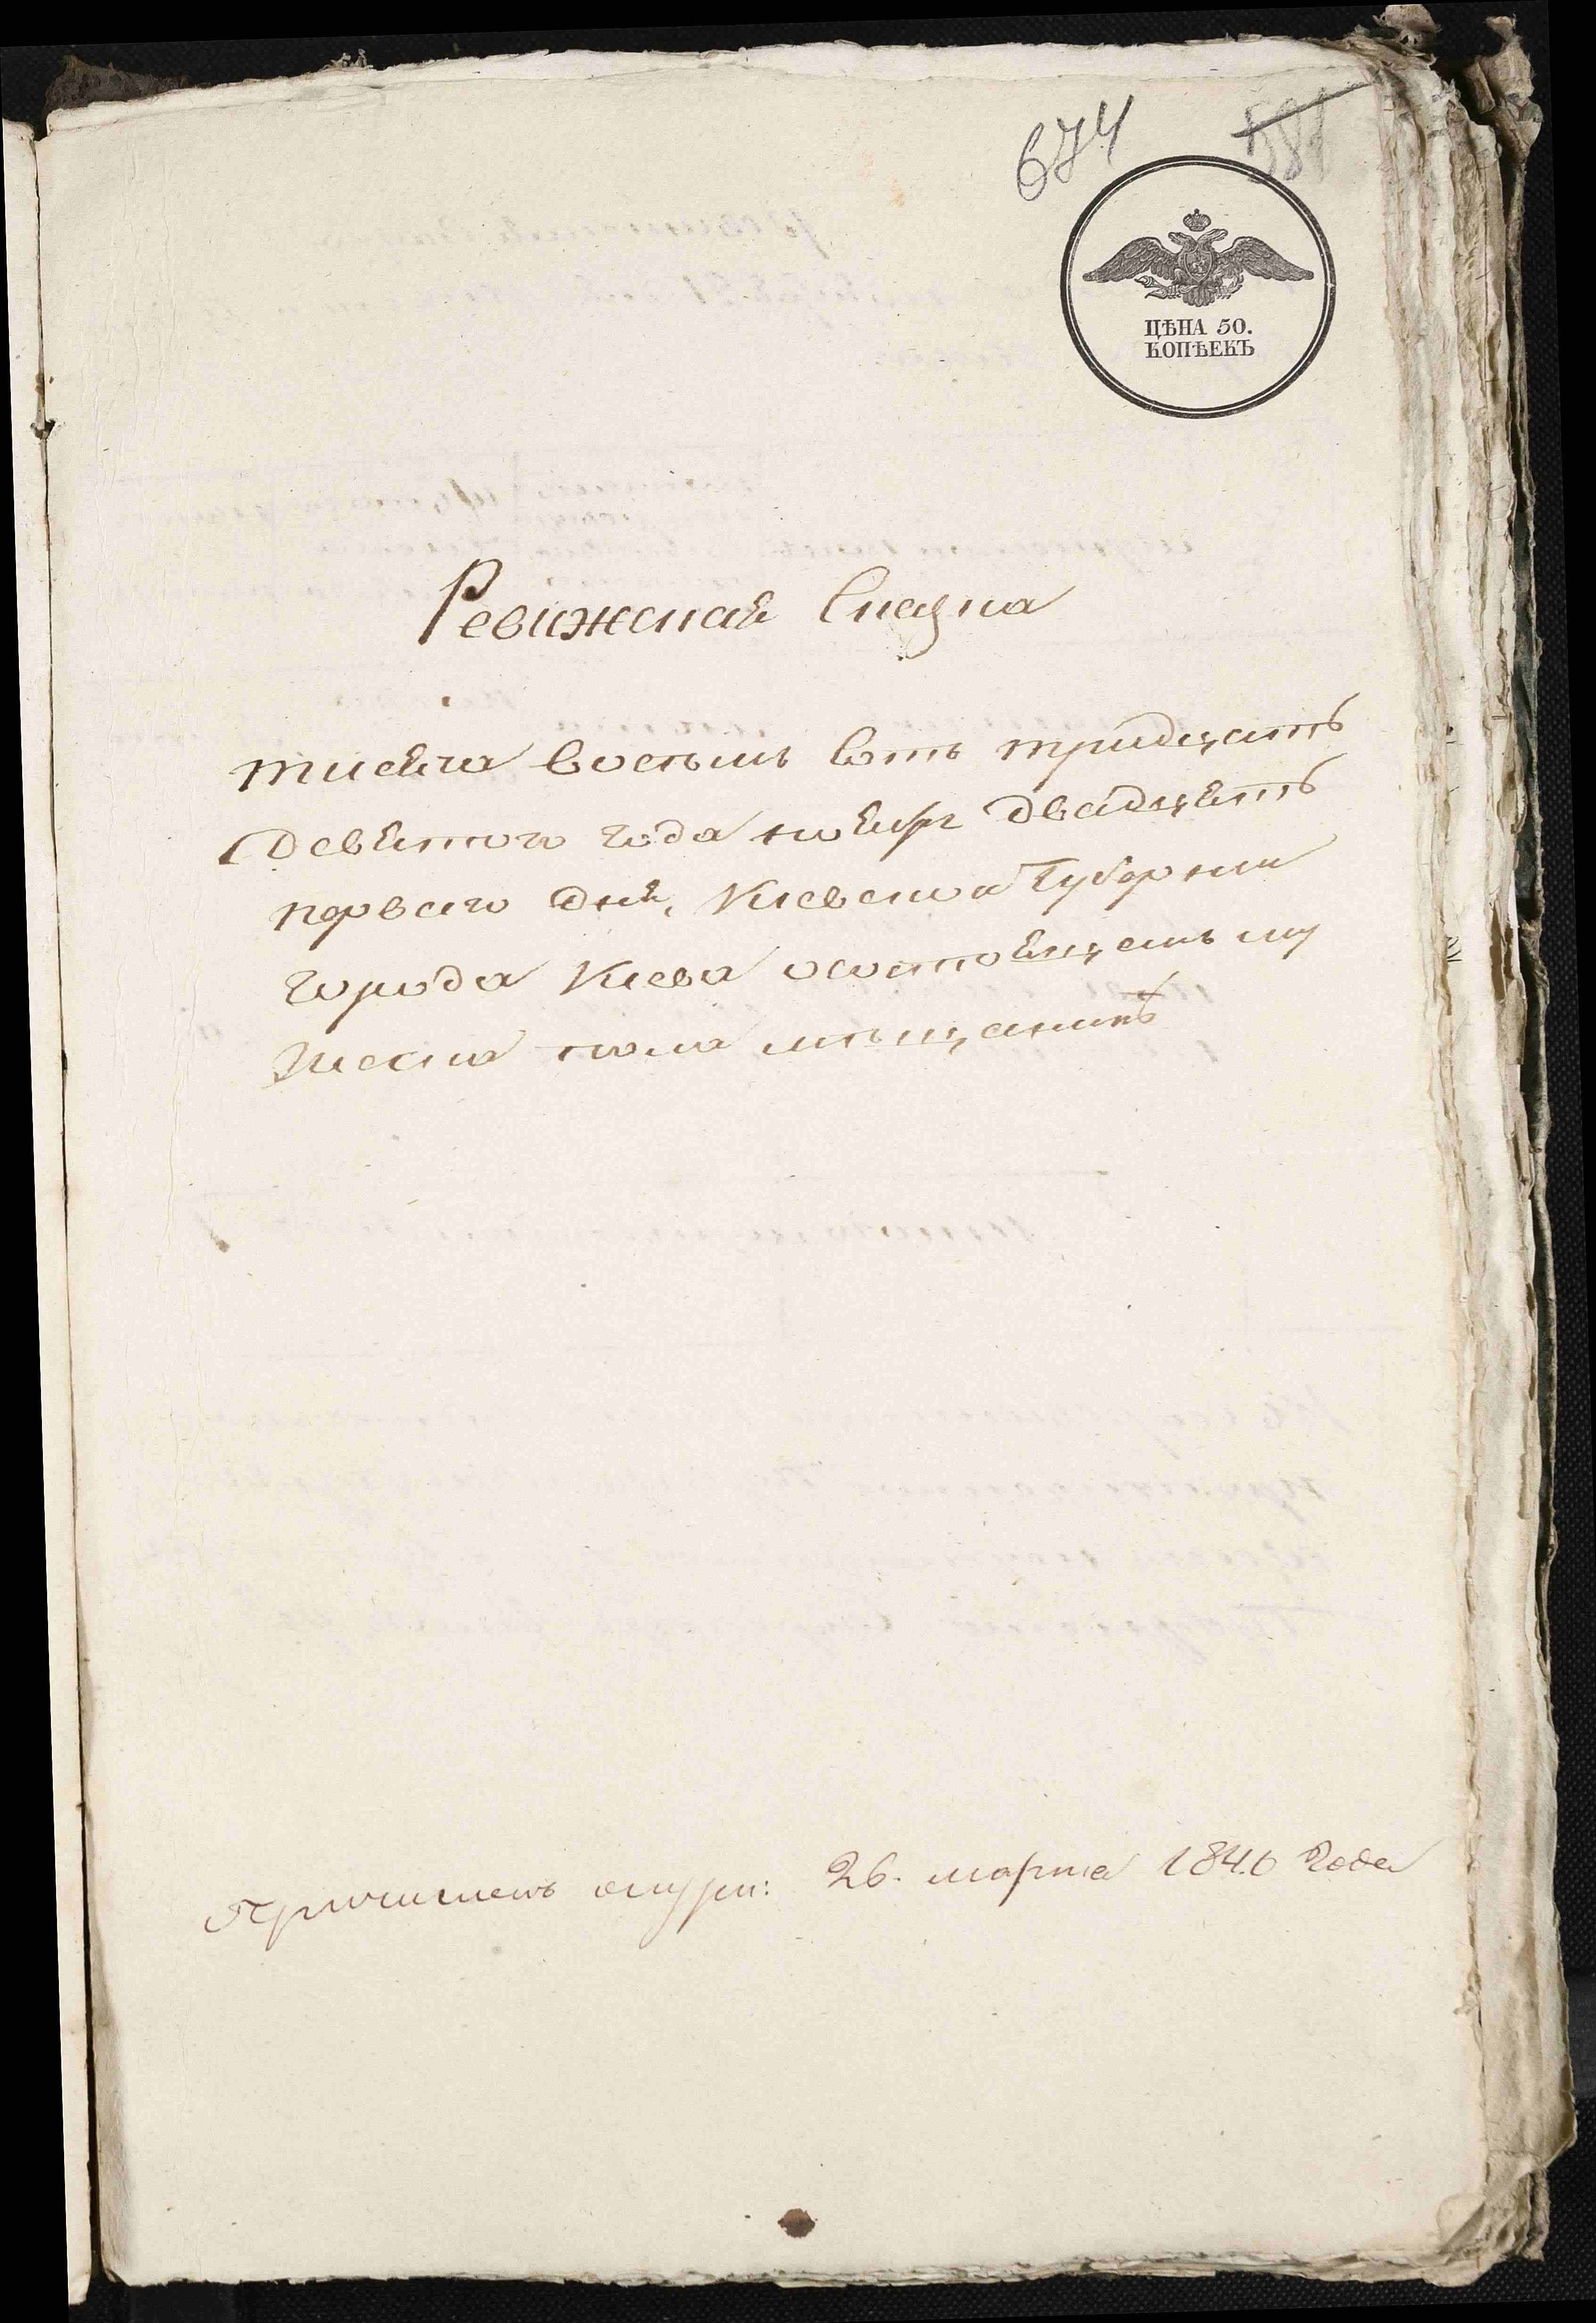 674
581
ЦѢНА 50.
КОПѢЕКЪ
Ревижская Сказка
тисяча восьмь сотъ тридцать
девятого года ноября двадцять
первого дня, Киевской Губернии
города Киева осостоящемъ му
жеска пола мѣщанинѣ
26. марта 1840 года